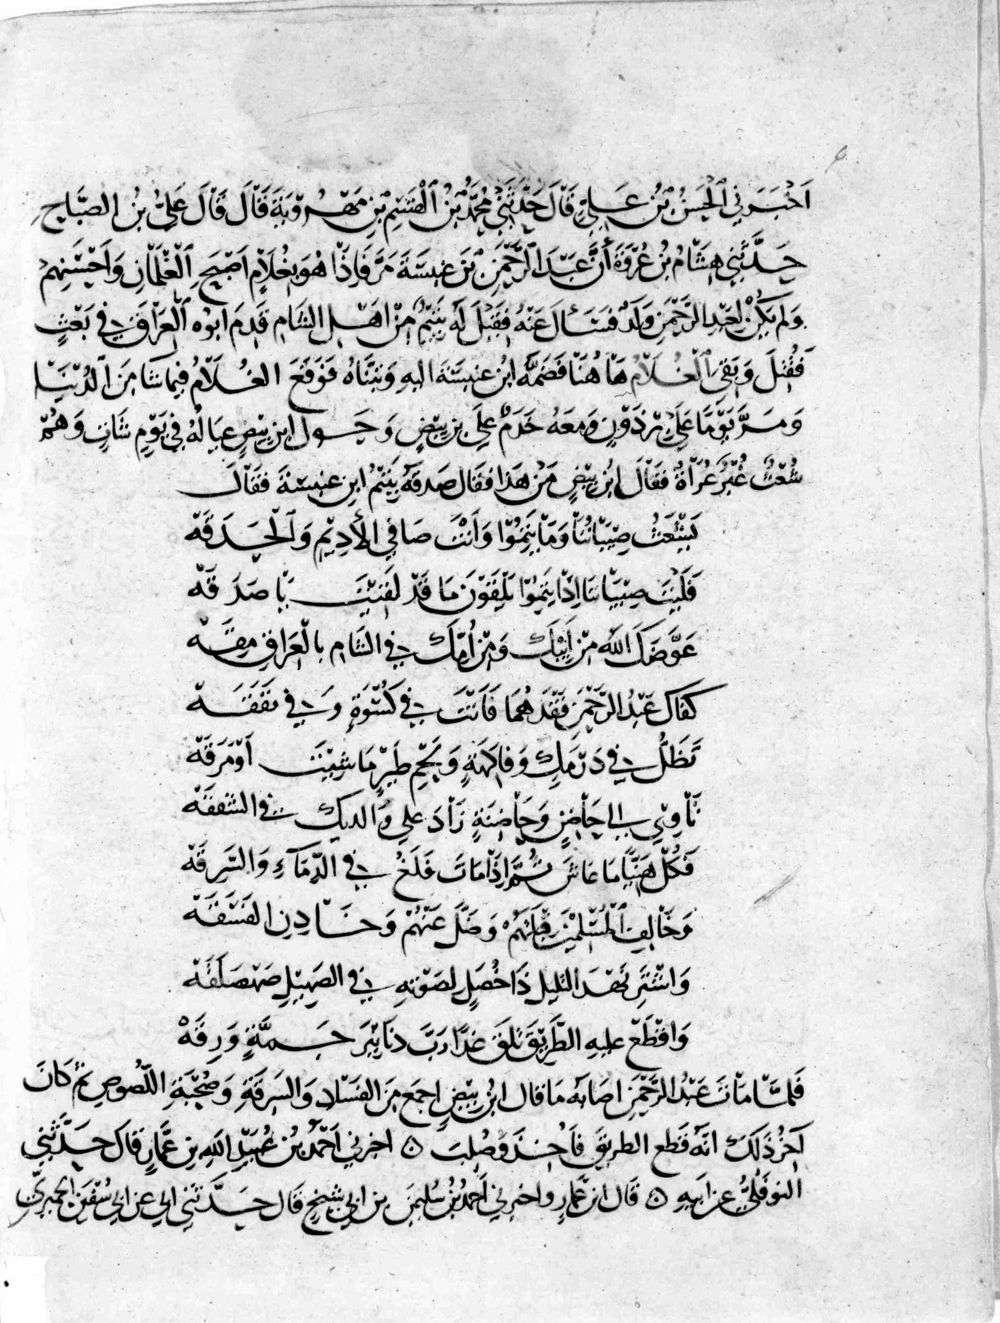 اَخْبَرَني الْحَسَنُ بْنُ عَلِيٍّ قَالَ حَدَّثَنِي مُحَمَّدُ بْنُ الْقٰسِمِ بْنِ مَهْرُوَيَةَ قَالَ قَالَ عَلِيُّ بْنُ الصَّبَّاحِ
حَدَّثَنِي هِشَامُ بْنُ عُرْوَةَ أَنَّ عَبْدَ الرَّحْمٰنِ بْنَ عَنْبَسَةَ مَرَّ فَاِذَا هُوَ بِغُلَامٍ اَصْبَحِ الْغِلْمَانِ وَاَحْسَنِهِمْ
وَلَمْ يَكُنْ لِعَبْدِ الرَّحْمٰنِ وَلَدٌ فَسَأَلَ عَنْهُ فَقِيْلَ لَهُ يَتِيْمٌ مِنْ اَهْلِ الشَّام قَدِمَ اَبُوْه الْعِرَاقَ فِي بَعْثٍ
فَقُتِلَ وَبَقِيَ الْغُلَامُ هَا هُنَا فَضَمَّهُ ابْنُ عَنْبَسَةَ اليهِ وَتَبَنَّاهُ فَوَقَعَ الغُلَامُ فِيمَا شَا مِنَ الدُّنْيَا
وَمَرَّ يَوْمًا عَلَى بِرْذَوْنٍ وَمَعَهُ خَدَمٌ عَلَى بن بِيْضٍ وَحَوْلَ ابن بِيْضٍ عِيَالُهُ فِي يَوْمٍ شَاتٍ وَهُمْ
شُعْثٌ غُبْرٌ عُرَاةٌ فَقَالَ ابْنُ بِيْضٍ مَنْ هَذَا فَقَالَ صَدَقَةُ يَتِيْمُ ابن عَنْبَسَةَ فَقَالَ
يَشْعَثُ صِبْيَانُنَا وَمَا يَتِمُوْا وَاَنْتَ صَافِي الْأَدِيْمِ وَالْحَدَقَهْ
فَلَيْتَ صِبْيَانَنَا اِذَا يَتِمُوْا يَلْقَوْنَ مَا قَدْ لَقِيْتَ يَا صَدَقَهْ
عَوَّضَكَ اللّٰهُ مِنْ اَبِيْكَ وَمِنْ اُمِّكَ فِي الشَّام بالْعِرَاقِ مِقَهْ
كَفَاكَ عَبْدُ الرَّحْمٰنِ فَقْدَهُمَا فَاَنْتَ فِي كُسْوَةٍ وَفِي نَفَقَهْ
تَظَلُّ فِي دَرْمَكٍ وَفَاكِهَةٍ وَلَحْمِ طَيْرٍ مَا شِئْتَ اَوْ مَرَقَهْ
تَأْوِي الى حَاضِنٍ وَحَاضِنَةٍ زَادَ على وَالديك فى الشفقَهْ
فَكُلْ هَنِيْئًا مَا عَاشَ ثُمَّ اِذَا مَاتَ فَلَغْ فِي الدِّمَآءِ وَالسَرِقَهْ
وَخَالِفِ الْمُسْلِمِيْنَ قِبْلَتَهُمْ وَضَلَّ عَنْهُمْ وَخَادِنِ الفَسَقَهْ
وَاشْتَرِ نَهْدَ التليل ذَا خُصَلٍ لِصَوْتِهِ فِي الصَهِيْلِ صَهْصَلَقَهْ
وَاقْطَعْ عليهِ الطَّرِيْقَ تَلْقَ غدًا رَبَّ دَنَانِيْرَ جَمَّةٍ وَرِقَهْ
فَلَمَّا مَاتَ عَبْدُ الرَّحْمٰنِ اصابَهُ مَا قال ابْنُ بِيْضٍ اَجمَع مِنَ الفَسَادِ وَالسَرِقَةِ وَصُحْبَةِ اللُّصُوصِ ثُمَّ كَانَ
آخِرُ ذٰلِكَ اَنَّهُ قَطَع الطريقَ فَاُخِذَ وَصُلِبَ ٥ اخبرني اَحْمَدُ بْنُ عُبَيْدِ اللّٰهِ بن عَمَّارٍ قَال حَدَّثَنِي
النوفَلِيُّ عَن اَبيهِ ٥ قَالَ ابنُ عَمَّارٍ واخبرني اَحْمَدُ بْنُ سُلَيمٰنَ بن ابي شَيْخٍ قَال حَدَّثَنِي ابي عن ابي سُفيٰنَ الحِمْيَرِيِّ